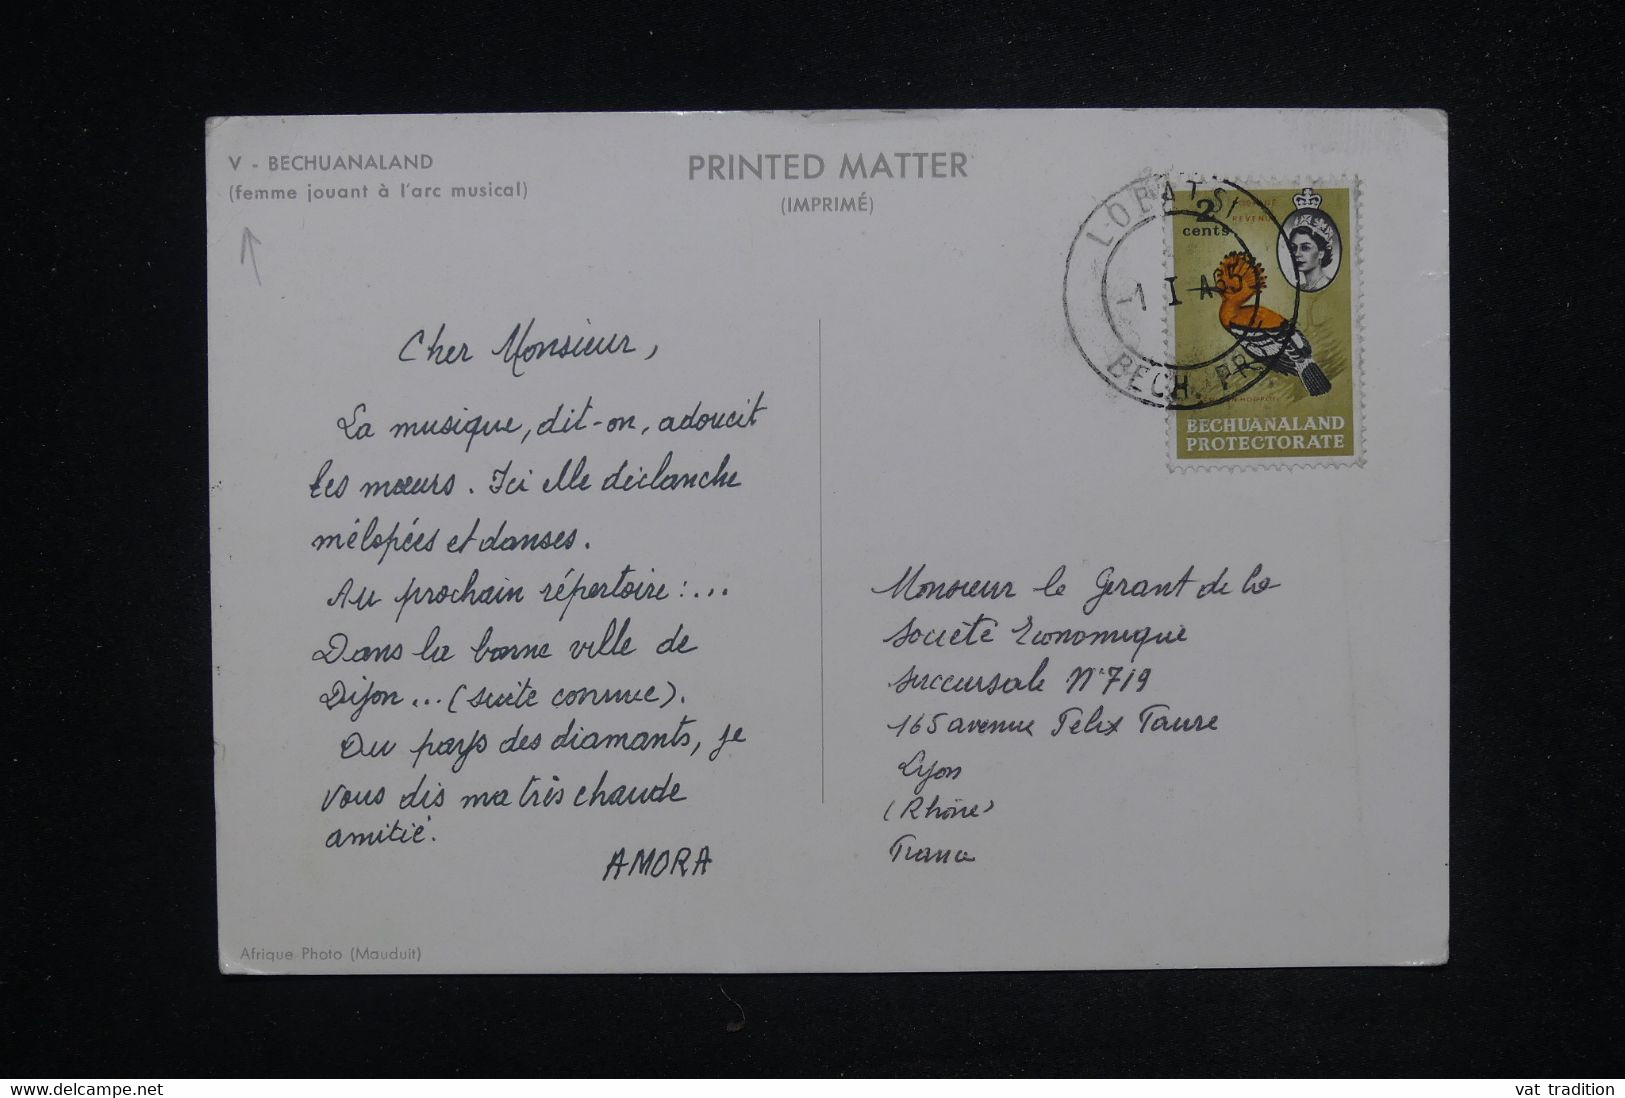 V - BECHUANALAND
(femme jouant à l'arc musical)
PRINTED MATTER
(IMPRIMÉ)
LOBATSI
1 I A65
BECH. PR
2
cents
REVENUE
BECHUANALAND
PROTECTORATE
Cher Monsieur,
La musique, dit-on, adoucit
les mœurs. Ici elle déclanche
mélopées et danses.
Au prochain répertoire :...
Dans la bonne ville de
Dijon... (suite connue).
Du pays des diamants, je
vous dis ma très chaude
amitié.
AMORA
Monsieur le Gerant de la
Société Economique
Succursale N°719
165 avenue Félix Faure
Lyon
(Rhône)
France
Afrique Photo (Mauduit)
www.delcampe.net
vat_tradition